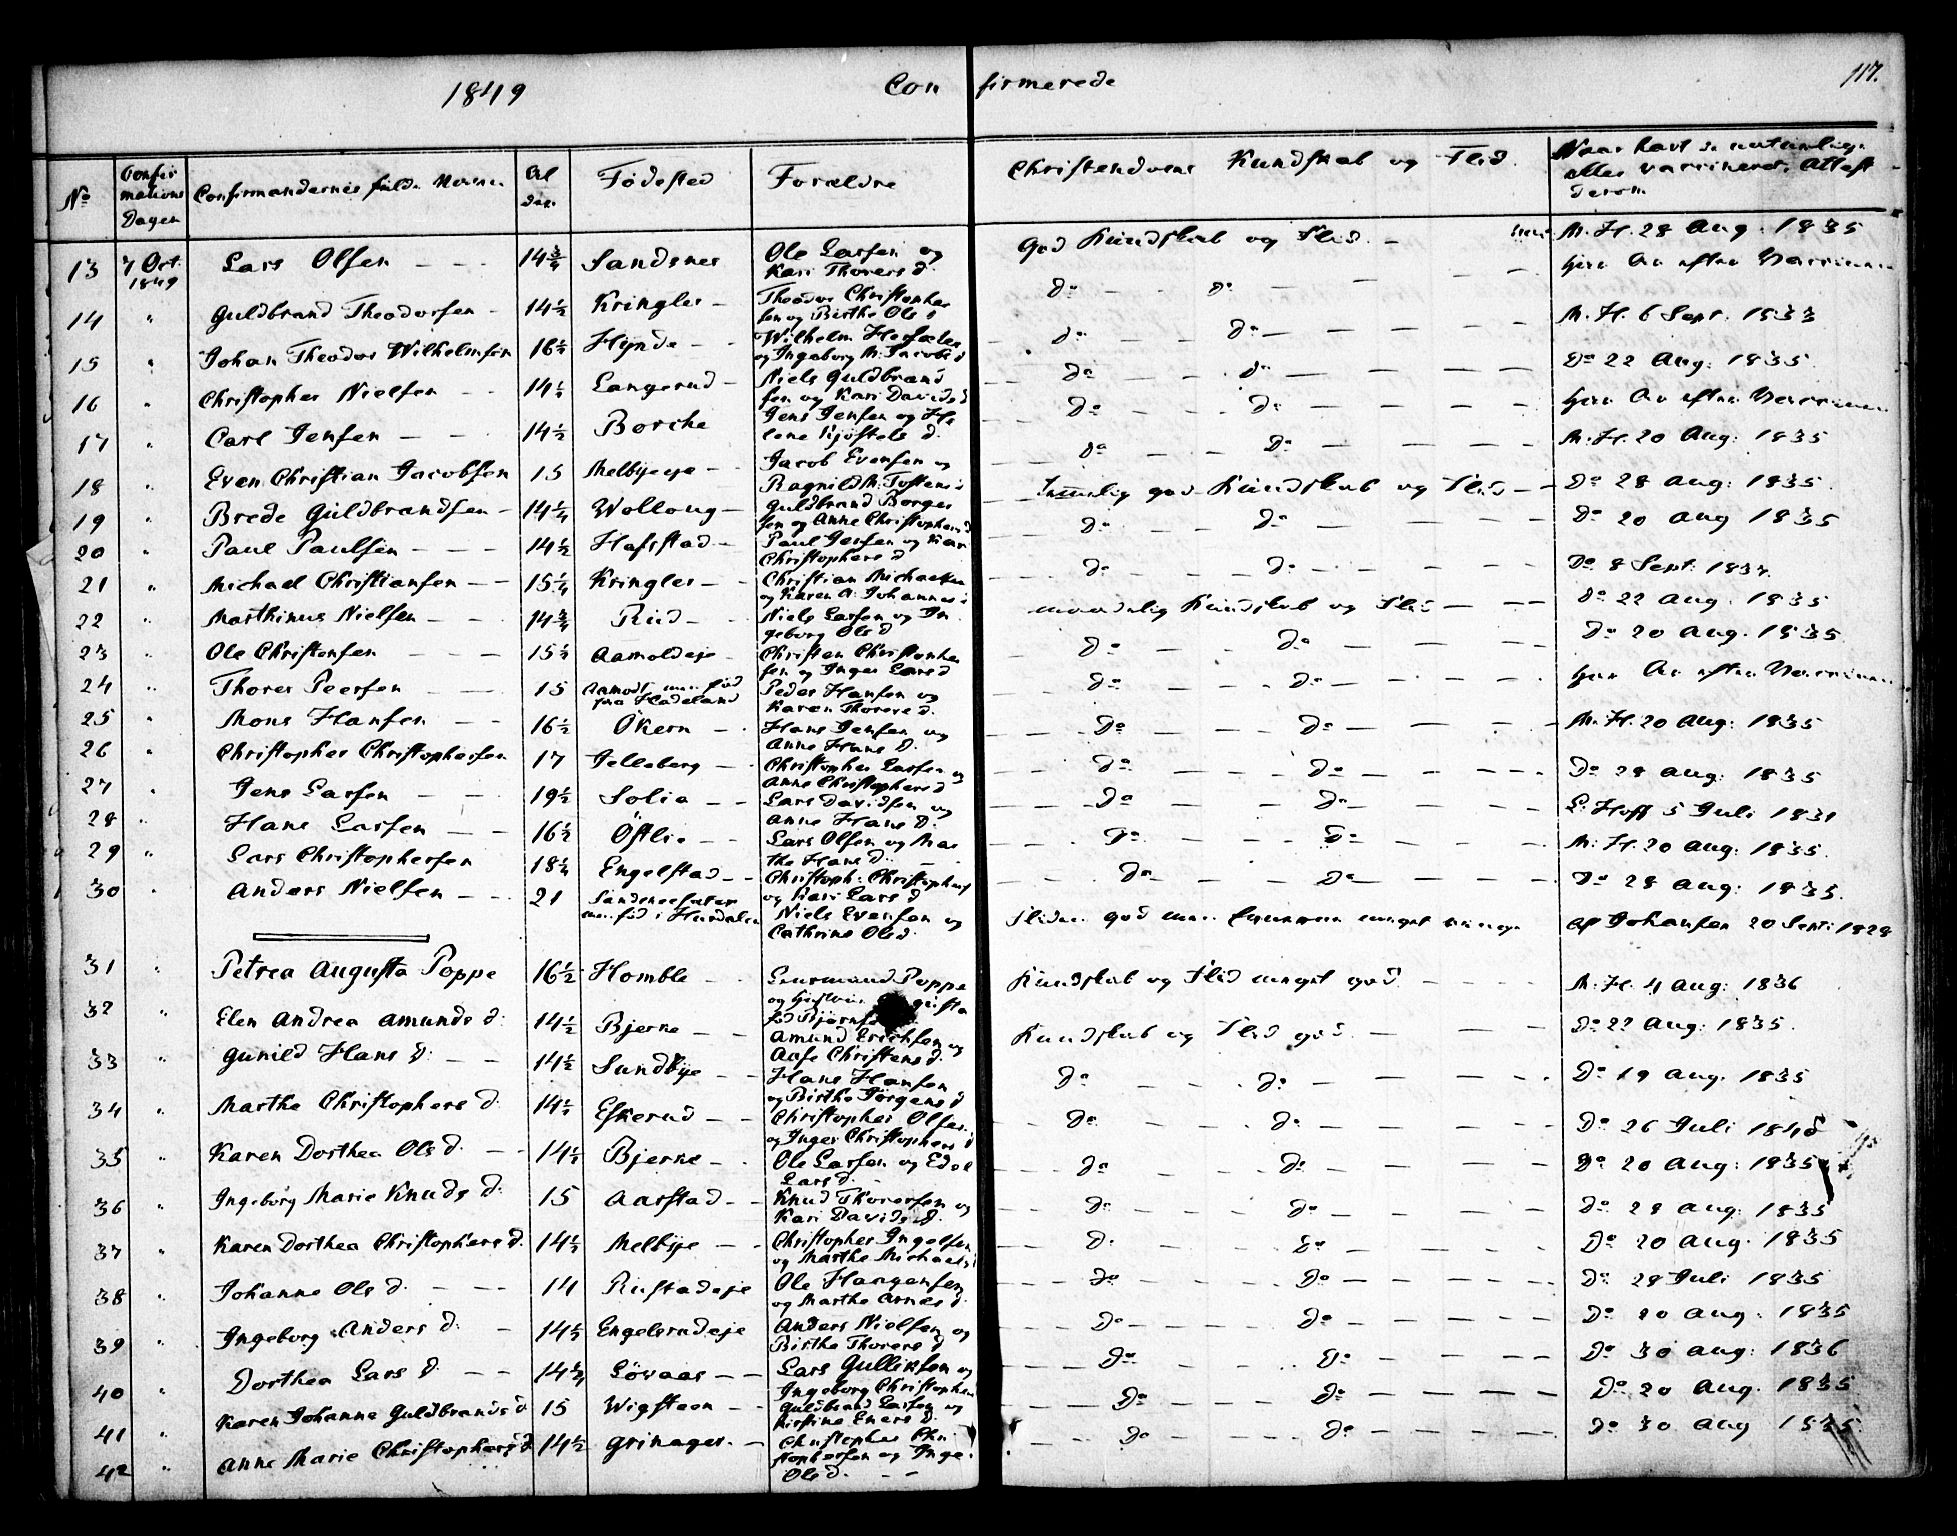 1849 Con firmerede 117.
No Confirmations Dagen Confirmandernes fulde Navne Alder Fødested Forældre Christendoms Kundskab og Flid. Naar havt de naturlige eller vaccineret. Attest derom
13 7 Oct. 1849 Lars Olsen 14 3/4 Sandsnes Ole Larsen og Kari Thorers d. God Kundskab og Flid. M. H. 28 Aug. 1835
14 " Guldbrand Theodorsen 14 1/2 Kringler Theodor Christophersen og Birthe Ols d Do Do har Ar efter Vaccinen
15 " Johan Theodor Wilhelmsen 16 1/2 Hynde Wilhelm og Ingeborg M. Jacobs d Do Do M. H. 6 Sept. 1833
16 " Christopher Nielsen 14 1/2 Langerud Niels Guldbrandsen og Kari Davids d Do Do Do 22 Aug. 1835
17 " Carl Jensen 14 1/2 Borche Jens Jensen og Helene Kjøstels d. Do Do har Ar efter Vaccinen
18 " Even Christian Jacobsen 15 Melbyeeje Jacob Evensen og Ragnild M. Tostens d Do Do M. H. 20 Aug: 1835
19 " Brede Guldbrandsen 14 1/4 Wolloug Guldbrand Borgersen og Anne Christophers d Temmelig god Kundskab og Flid Do 28 Aug: 1835
20 " Paul Paulsen 14 1/2 Hafstad Paul Jensen og Kari Christophers d Do Do Do 20 Aug 1835
21 " Michael Christiansen 15 1/4 Kringler Christian Michaelsen og Karen A. Johannes d Do Do Do 8 Sept: 1834
22 " Marthinus Nielsen 14 3/4 Rud Niels Larsen og Ingeborg Ols d maadelig Kundskab og Flid Do 22 Aug. 1835
23 " Ole Christensen 15 1/2 Aamoldeje Christen Christophersen og Inger Lars d Do Do Do 20 Aug. 1835
24 " Thorer Peersen 15 Aamodt men fød paa Hadeland Peder Hansen og Karen Thorers d. Do Do har Ar efter Vaccinen
25 " Mons Hansen 16 1/2 Økern Hans Jensen og Anne Hans d. Do Do M. H. 20 Aug: 1835
26 " Christopher Christophersen 17 Jelleberg Christopher Larsen og Anne Christophers d Do Do Do 28 Aug: 1835
27 " Jens Larsen 19 1/2 Solie Lars Davidsen og Anne Hans d. Do Do L. Hoff 5 Juli 1831
28 " Hans Larsen 16 1/2 Østlie Lars Olsen og Marthe Hans d. Do Do M. H. 20 Aug: 1835.
29 " Lars Christophersen 18 1/2 Engelstad Christoph. Christophers og Kari Lars d Do Do Do 28 Aug: 1835.
30 " Anders Nielsen 21 men fød i Hurdalen Niels Evensen og Cathrine Ols d. Fliden god men meget ringe Johansen 20 Sept: 1828
31 " Petrea Augusta Poppe 16 1/2 Homble Poppe og fød Kundskab og Flid meget god M. H. 4 Aug: 1836
32 " Elen Andrea Amunds d. 14 1/2 Bjerne Amund Erichsen og Aase Christens d. Kundskab og Flid god Do 22 Aug: 1835.
33 " Gunild Hans d. 14 1/2 Sundbye Hans Hansen og Birthe Jørgens d Do Do Do 19 Aug. 1835
34 " Marthe Christophers d. 14 1/2 Eskerud Christopher Olsen og Inger Christophers d Do Do Do 26 Juli 1845
35 " Karen Dorthea Ols d. 14 1/2 Bjerne Ole Larsen og Edel Lars d. Do Do Do 20 Aug: 1835
36 " Ingeborg Marie Knuds d. 15 Aarstad Knud Thorersen og Kari Davids d. Do Do Do 28 Aug. 1835
37 " Karen Dorthea Christophers d. 14 1/2 Melbye Christopher Ingelsen og Marthe Michaels d Do Do Do 20 Aug. 1835
38 " Johanne Ols d. 14 Rustadeje Ole Haagensen og Marthe Arnes d. Do Do Do 28 Juli 1835
39 " Ingeborg Anders d. 14 1/2 Engelsrudeje Anders Nielsen og Birthe Thorers d Do Do Do 20 Aug: 1835
40 " Dorthea Lars d. 14 3/4 Løvaas Lars Gulliksen og Ingeborg Christophers Do Do Do 30 Aug: 1836
41 " Karen Johanne Guldbrands d 15 Wigsteen Guldbrand Larsen og Kirstine Eners d. Do Do Do 20 Aug. 1835
42 " Anne Marie Christophers d 14 1/2 Grinager. Christopher Christophersen og Inge Ols d. Do Do Do 30 Aug 1835